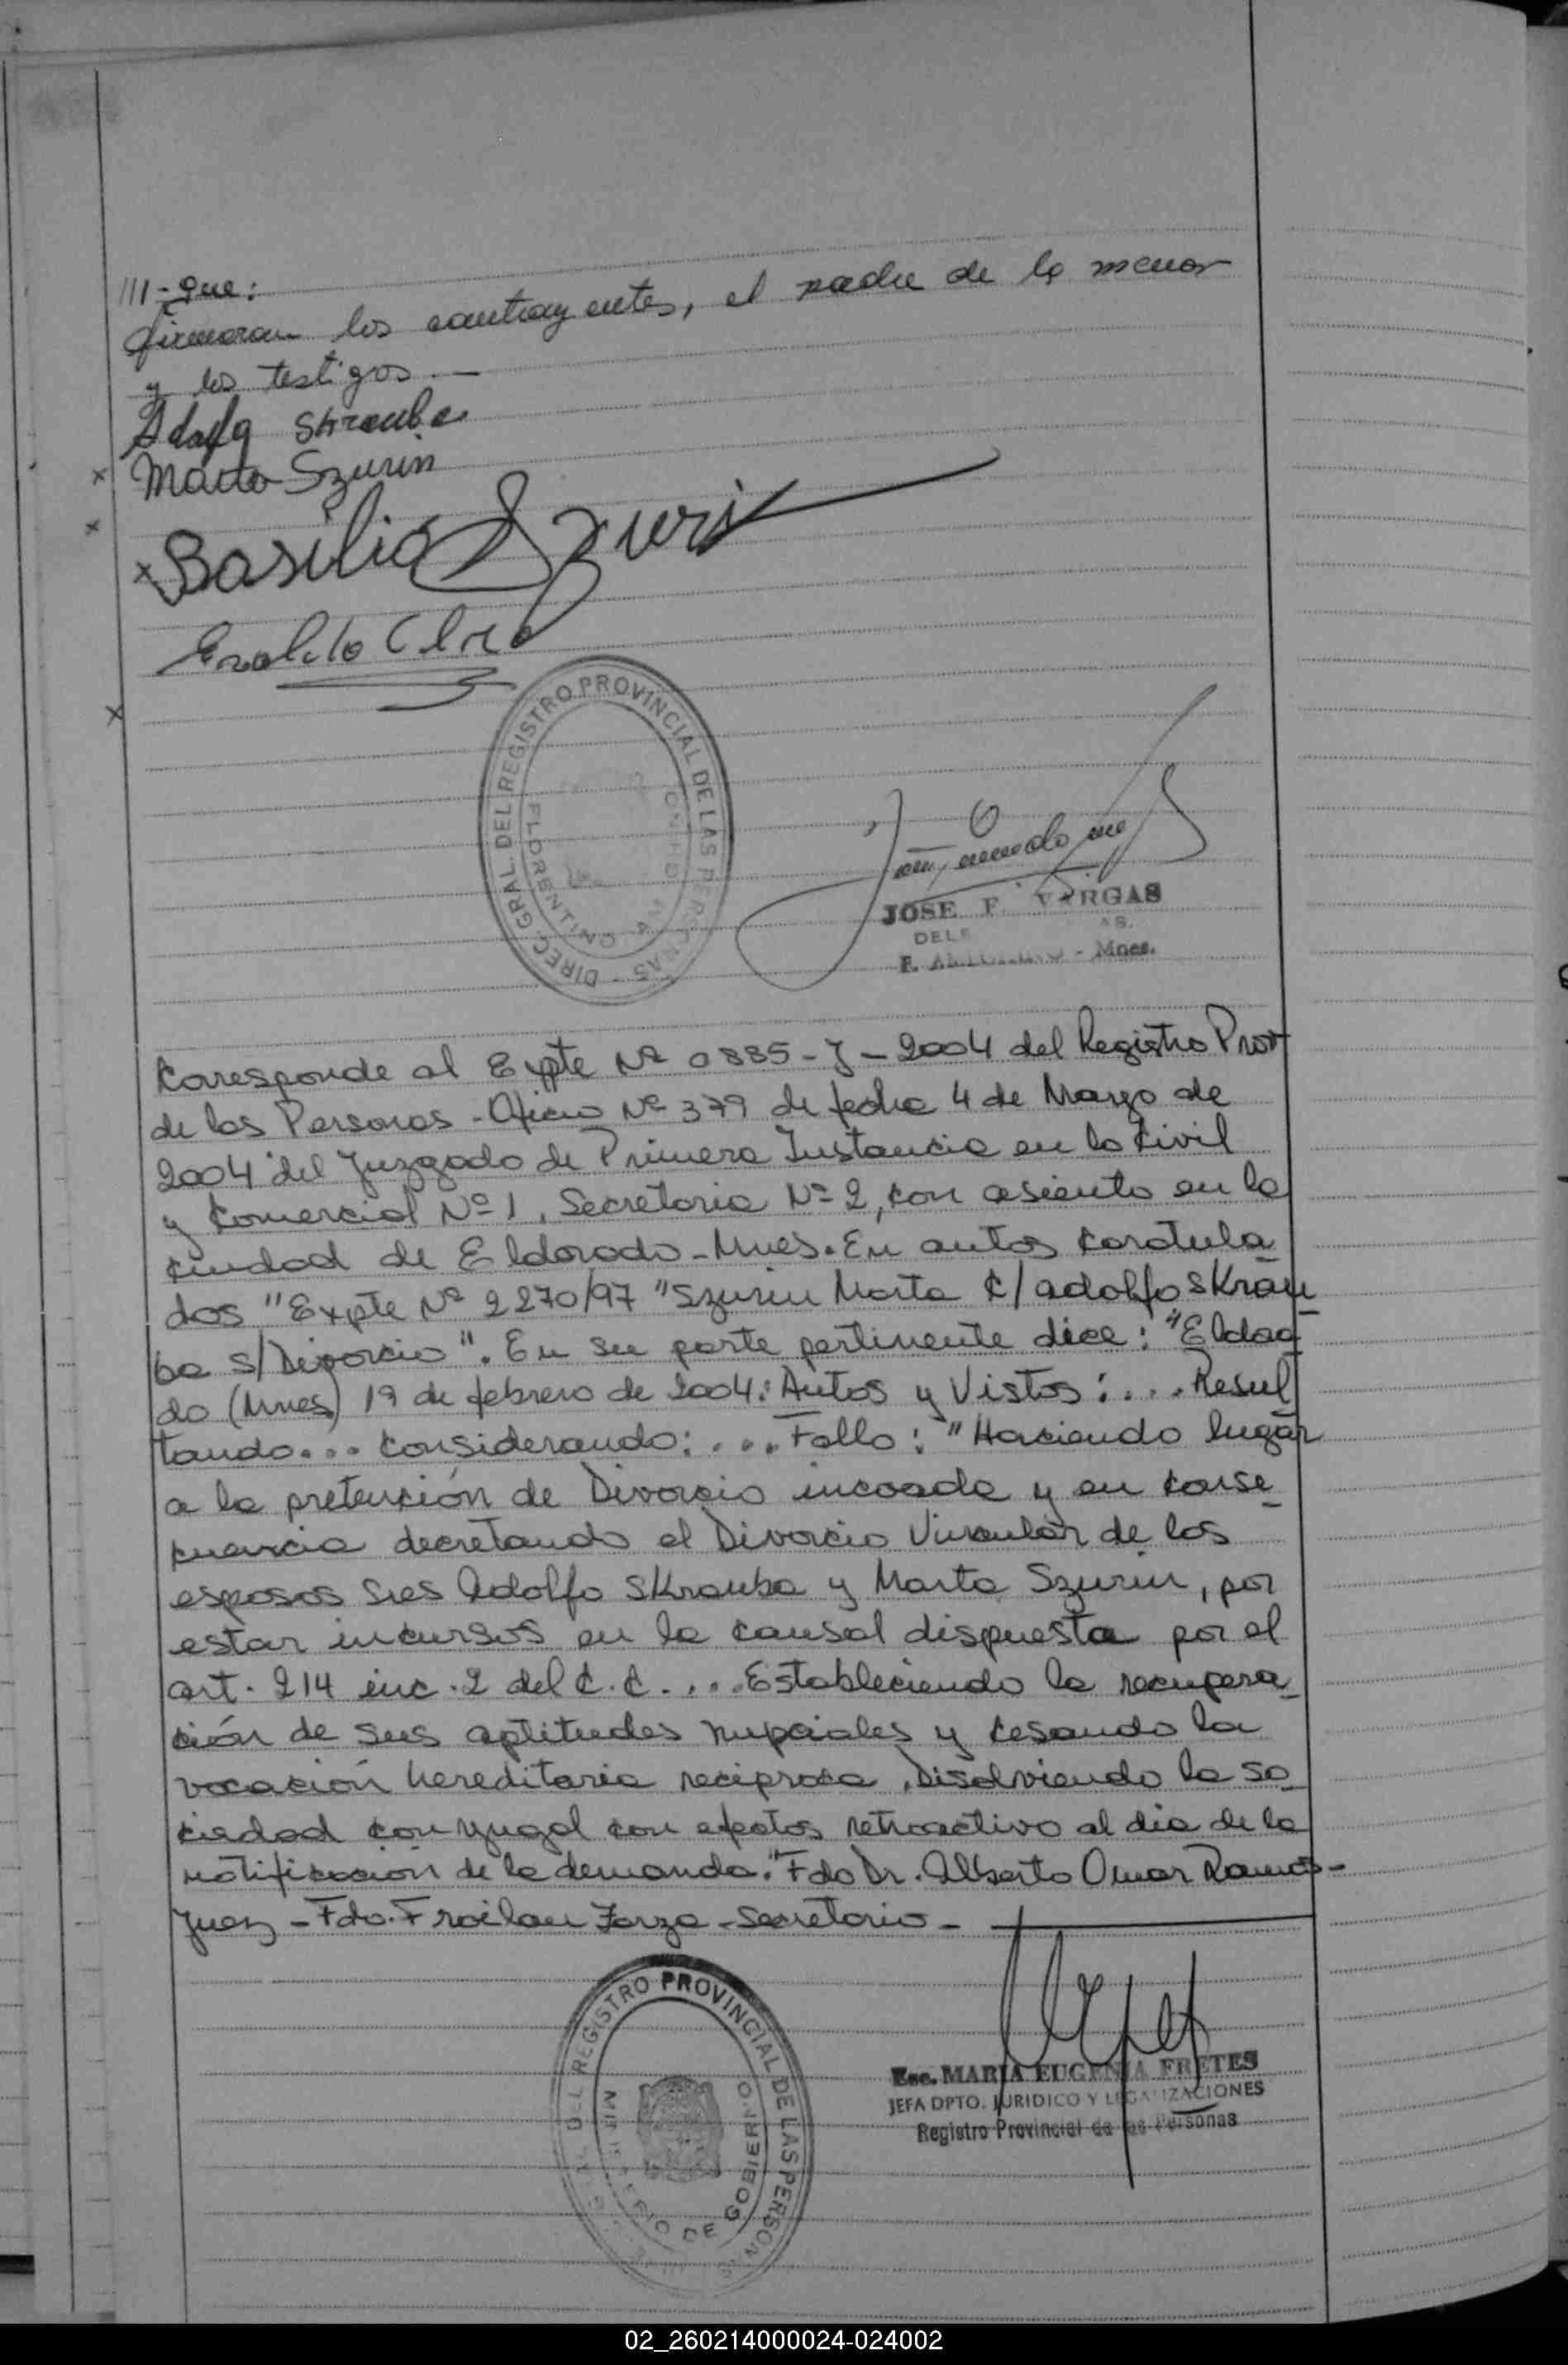 III-que:
firmaran los contrayentes, el padre de la menor
y los testigos.—
Skrauba
Marta Szurin
Basilio Szurin
DIREC. GRAL. DEL REGISTRO PROVINCIAL DE LAS PERSONAS -
FLORENTINO AM
JOSE F. VARGAS
DELE AS.
F. AMEGHINO - Mnes.
Corresponde al Expte Nº 0885-J-2004 del Registro Prov
de las Personas - Oficio Nº 379 de fecha 4 de Marzo de
2004 del Juzgado de Primera Instancia en lo Civil
y Comercial Nº 1, Secretaria Nº 2, con asiento en la
ciudad de Eldorado-Mnes. En autos caratula
dos "Expte Nº 2270/97 "Szurin Marta C/ Adolfo SKrau
ba S/Divorcio". En su parte pertinente dice: "Eldora
do (Mnes) 19 de febrero de 2004: Autos y Vistos:.... Resul
tando... Considerando:.... Fallo: "Haciendo lugar
a la pretención de Divorcio incoada y en conse
cuencia decretando el Divorcio Vincular de los
esposos Sres Adolfo SKrauba y Marta Szurin, por
estar incursos en la causal dispuesta por el
art. 214 inc. 2 del C.C. ... Estableciendo la recupera
ción de sus aptitudes nupciales y cesando la
vocación hereditaria reciproca, Disolviendo la so
ciedad conyugal con efectos retroactivo al dia de la
notificación de la demanda." Fdo Dr. Alberto Omar Ramos-
Juez - Fdo. Froilan Zarza - Secretario -
DEL REGISTRO PROVINCIAL DE LAS PERSONAS
MINISTERIO DE GOBIERNO
Esc. MARIA EUGENIA FRETES
JEFA DPTO. JURIDICO Y LEGALIZACIONES
Registro Provincial de las Personas
02_260214000024-024002